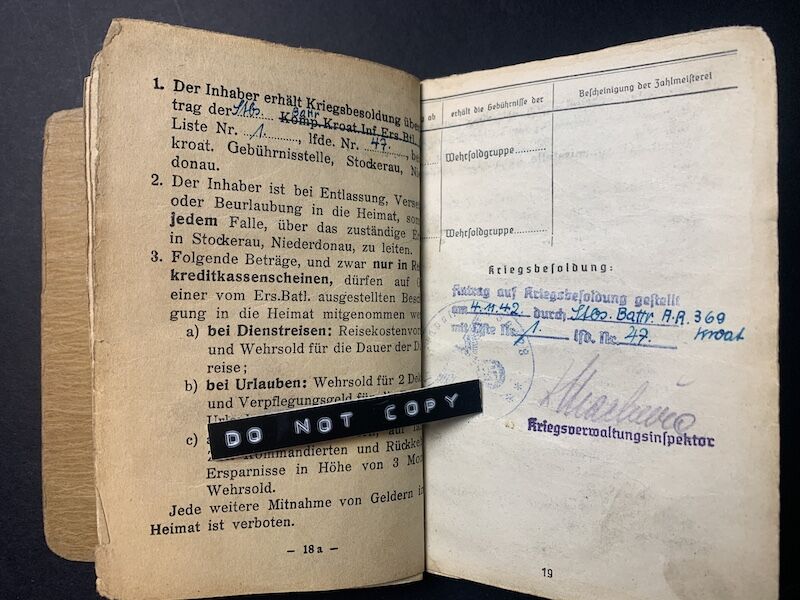 1. Der Inhaber erhält Kriegsbesoldung über
trag der Stbs. Battr. Komp. Kroat. Inf. Ers. Btl.
Liste Nr. 1., lfde. Nr. 47.
kroat. Gebührnisstelle, Stockerau, Ni
donau.
2. Der Inhaber ist bei Entlassung, Verse
oder Beurlaubung in die Heimat, so
jedem Falle, über das zuständige
in Stockerau, Niederdonau, zu leiten.
3. Folgende Beträge, und zwar nur in Re
kreditkassenscheinen, dürfen auf
einer vom Ers.Batl. ausgestellten Besc
gung in die Heimat mitgenommen we
a) bei Dienstreisen: Reisekostenvor
und Wehrsold für die Dauer der D
reise;
b) bei Urlauben: Wehrsold für 2 De
und Verpflegungsgeld für
c)
Kommandierten und Rückke
Ersparnisse in Höhe von 3 Mon
Wehrsold.
Jede weitere Mitnahme von Geldern in
Heimat ist verboten.
— 18 a —
DO NOT COPY
ab
erhält die Gebührnisse der
Bescheinigung der Zahlmeisterei
Wehrsoldgruppe
Wehrsoldgruppe
Kriegsbesoldung:
Antrag auf Kriegsbesoldung gestellt
am 4.11.42. durch Stbs. Battr. A.R. 369
mit Liste Nr. 1. lfd. Nr. 47. kroat
Kriegsverwaltungsinspektor
19